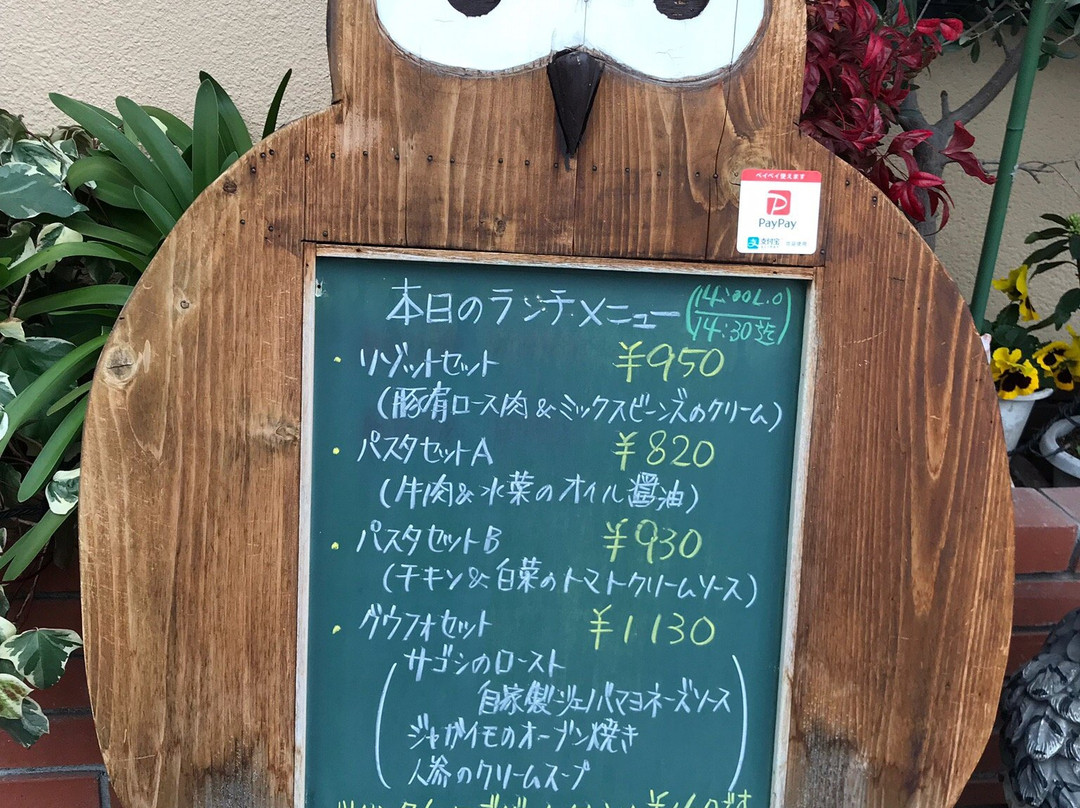 ペイペイ使えます
PayPay
支付宝
本日のランチメニュー (14:00L.O
14:30迄)
・リゾットセット ¥950
(豚肩ロース肉&ミックスビーンズのクリーム)
・パスタセットA ¥820
(牛肉&水菜のオイル醤油)
・パスタセットB ¥930
(チキン&白菜のトマトクリームソース)
・グウフォセット ¥1130
(サゴシのロースト
自家製ジェノバマヨネーズソース
ジャガイモのオーブン焼き
人参のクリームスープ)